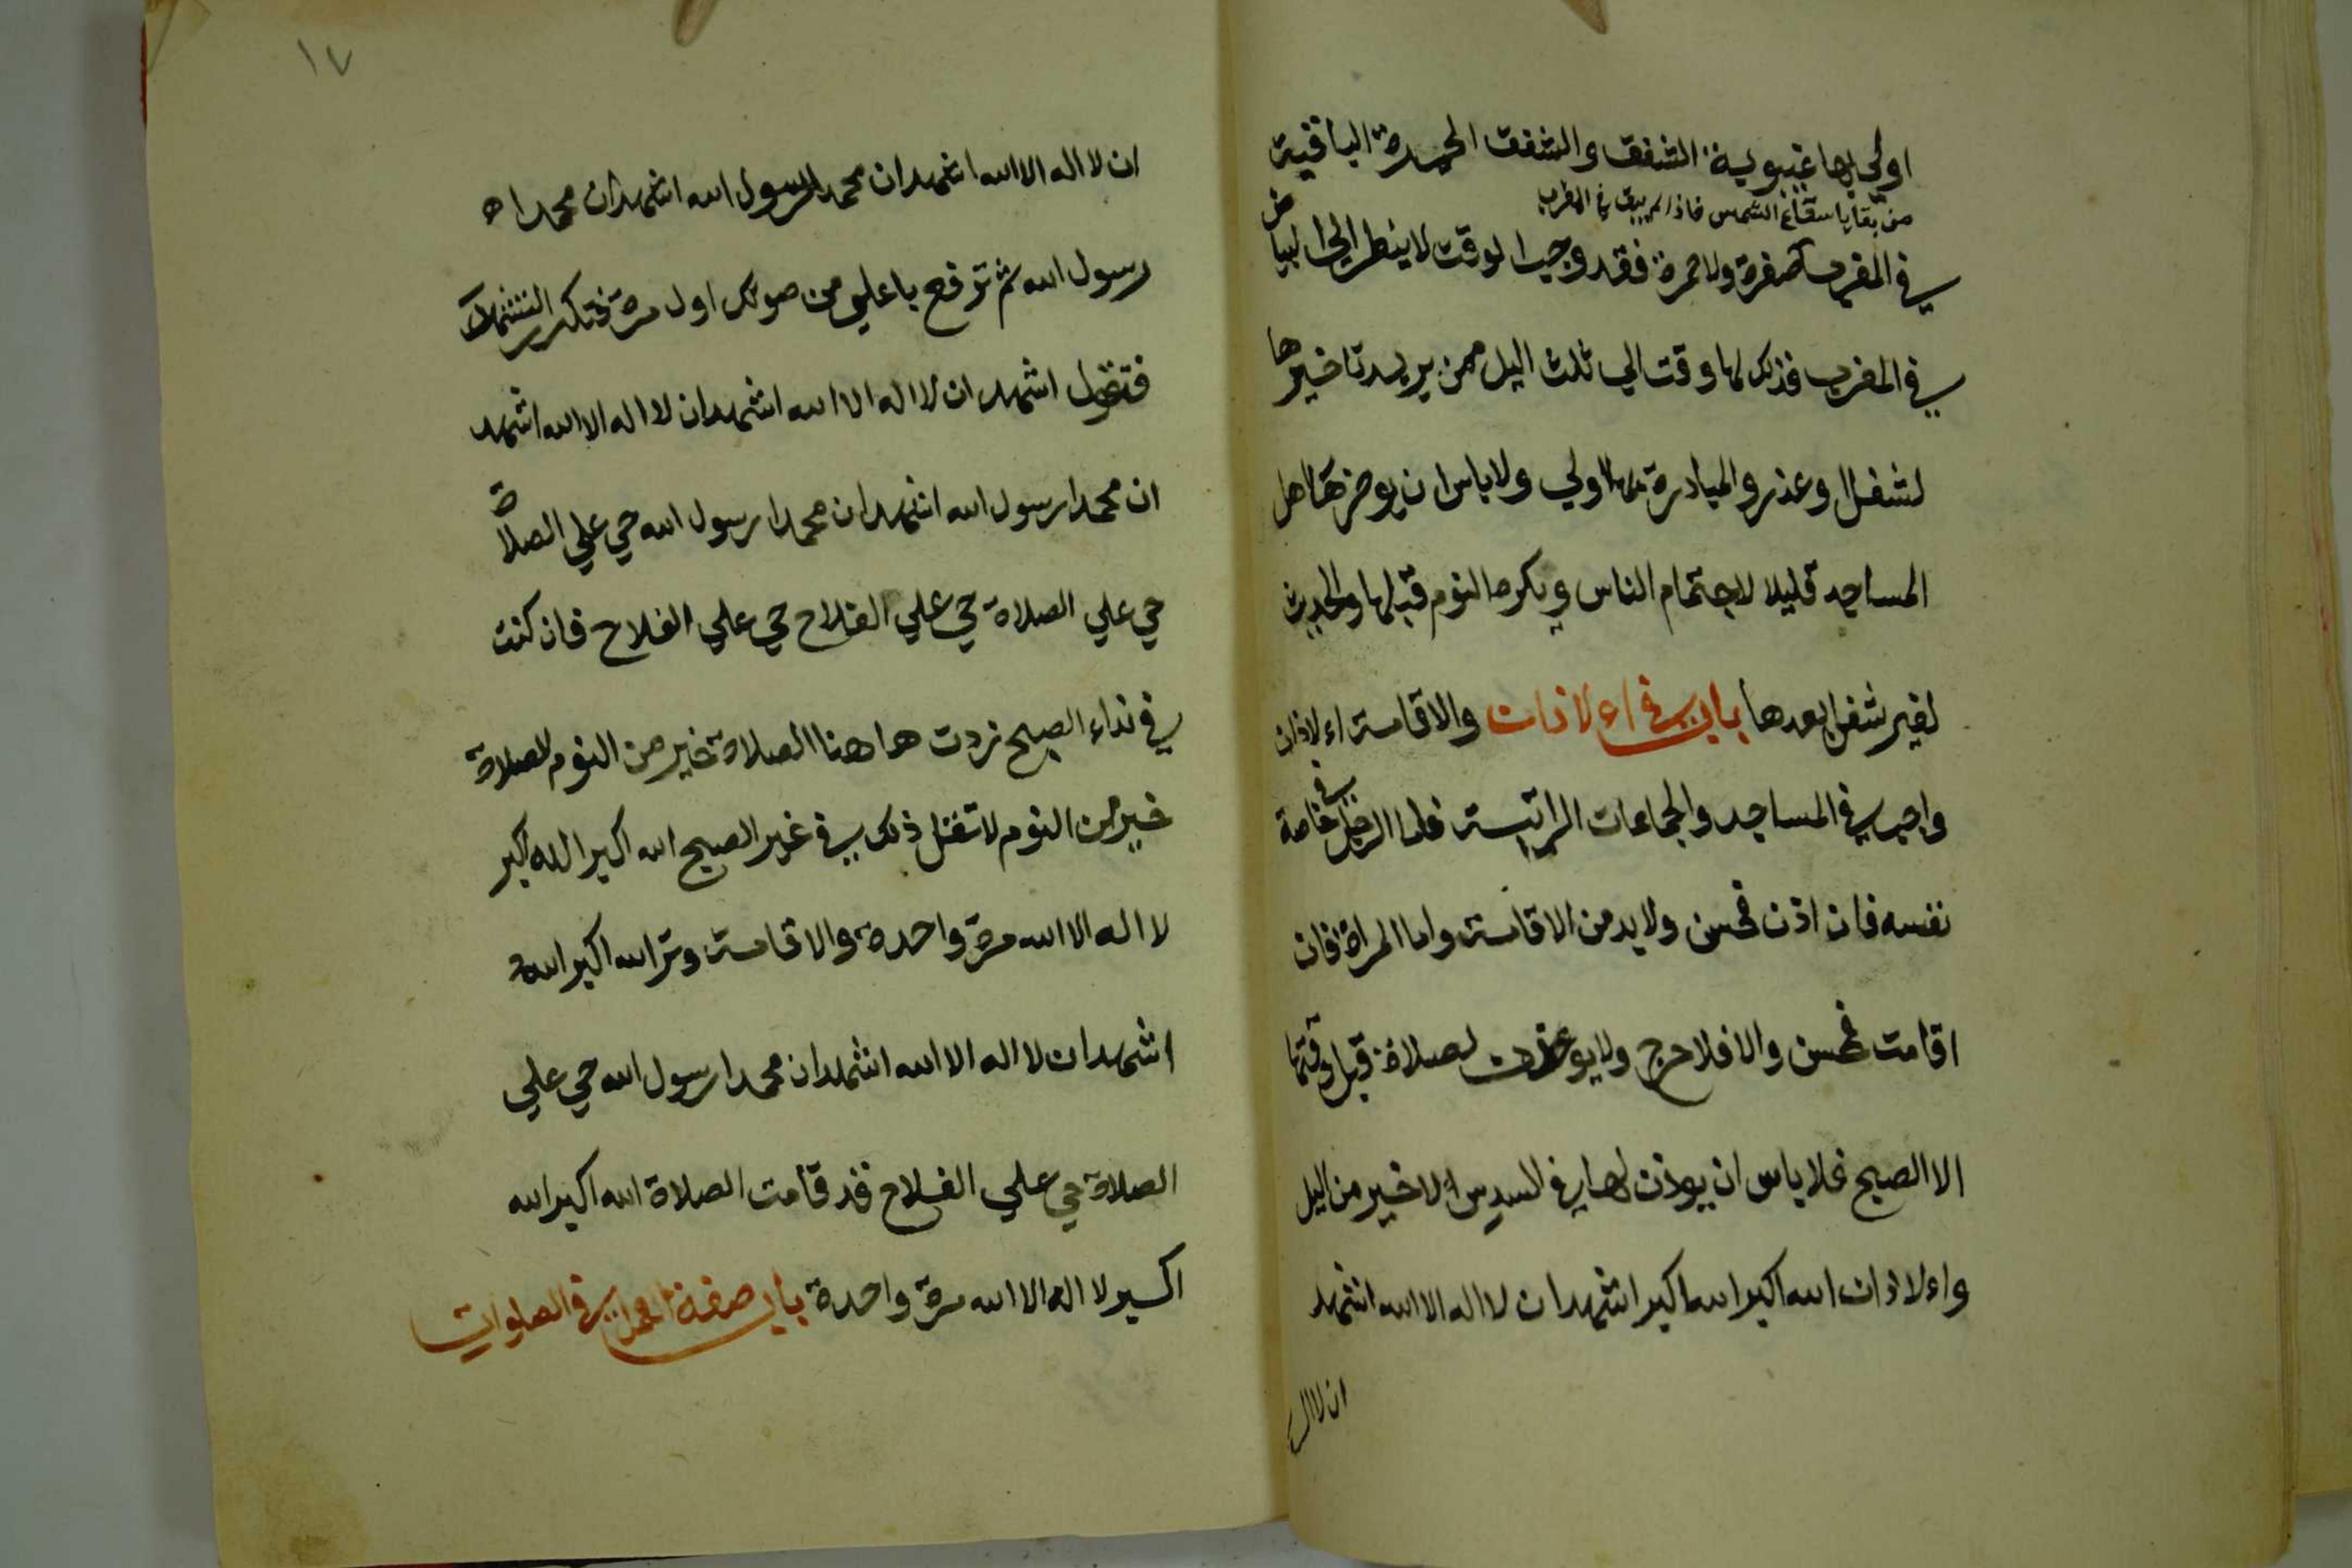 اولي بها غيبوبة الشفق والشفق الحمرة الباقية
من بقايا شعاع الشمس فاذا لم يبق في المغرب
في المغرب صفرة ولا حمرة فقد وجب الوقت لا ينظر الي البياض
في المغرب فذلك لها وقت الي ثلث اليل ممن يريد تاخيرها
لشغل او عذر والمبادرة بها اولي ولا باس ان يوخرها اهل
المساجد قليلا لاجتماع الناس ويكره النوم قبلها والحديث
لغير شغل بعدها باب في اءلاذان والاقامة اءلاذان
واجب في المساجد والجماعات الراتبة فاما الرجل في خاصة
نفسه فان اذن فحسن ولا بد من الاقامة واما المراة فان
اقامت فحسن والا فلا حرج ولا يوءذن لصلاة قبل وقتها
الا الصبح فلا باس ان يوذن لها في السدس الاخير من اليل
واءلاذان الله اكبر الله اكبر اشهد ان لا اله الا الله اشهد
ان لا اله
١٧
ان لا اله الا الله اشهد ان محمدا رسول الله اشهد ان محمدا
رسول الله ثم ترفع باعلي من صوتك اول مرة فتكرر التشهد
فتقول اشهد ان لا اله الا الله اشهد ان لا اله الا الله اشهد
ان محمدا رسول الله اشهد ان محمدا رسول الله حي علي الصلاة
حي علي الصلاة حي علي الفلاح حي علي الفلاح فان كنت
في نداء الصبح زدت هاهنا الصلاة خير من النوم الصلاة
خير من النوم لا تقل ذلك في غير الصبح الله اكبر الله اكبر
لا اله الا الله مرة واحدة والاقامة وتر الله اكبر الله
اشهد ان لا اله الا الله اشهد ان محمدا رسول الله حي علي
الصلاة حي علي الفلاح قد قامت الصلاة الله اكبر الله
اكبر لا اله الا الله مرة واحدة باب صفة العمل في الصلوات